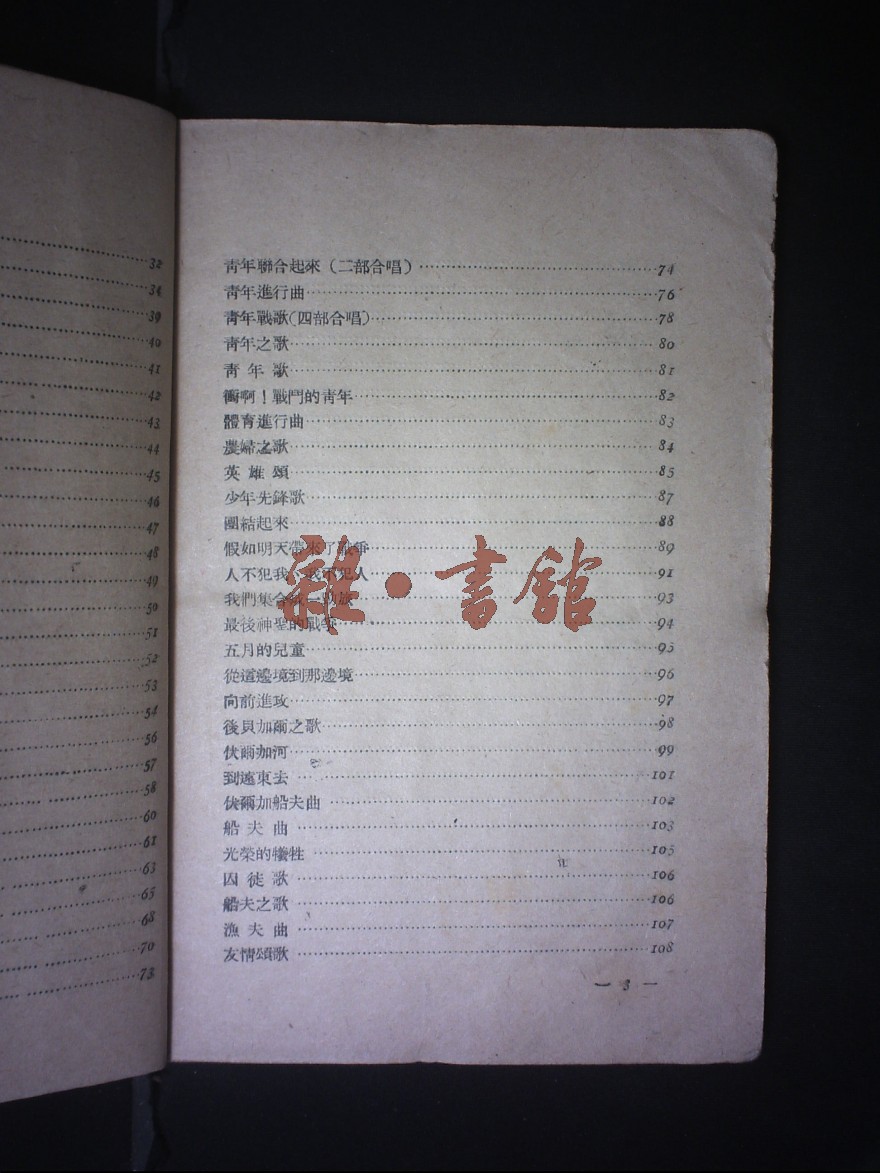 32
34
39
40
41
42
43
44
45
46
47
48
49
50
51
52
53
54
56
57
58
60
61
63
65
68
70
73
靑年聯合起來（二部合唱）74
靑年進行曲76
靑年戰歌（四部合唱）78
靑年之歌80
靑年歌81
衝啊！戰鬥的靑年82
體育進行曲83
農婦之歌84
英雄頌85
少年先鋒歌87
團結起來88
假如明天帶來了戰爭89
人不犯我，我不犯人91
我們集合 一 族93
最後神聖的戰爭94
五月的兒童95
從這邊境到那邊境96
向前進攻97
後貝加爾之歌98
伏爾加河99
到遠東去101
伏爾加船夫曲102
船夫曲103
光榮的犧牲105
囚徒歌106
船夫之歌106
漁夫曲107
友情頌歌108
— 3 —
雜·書館